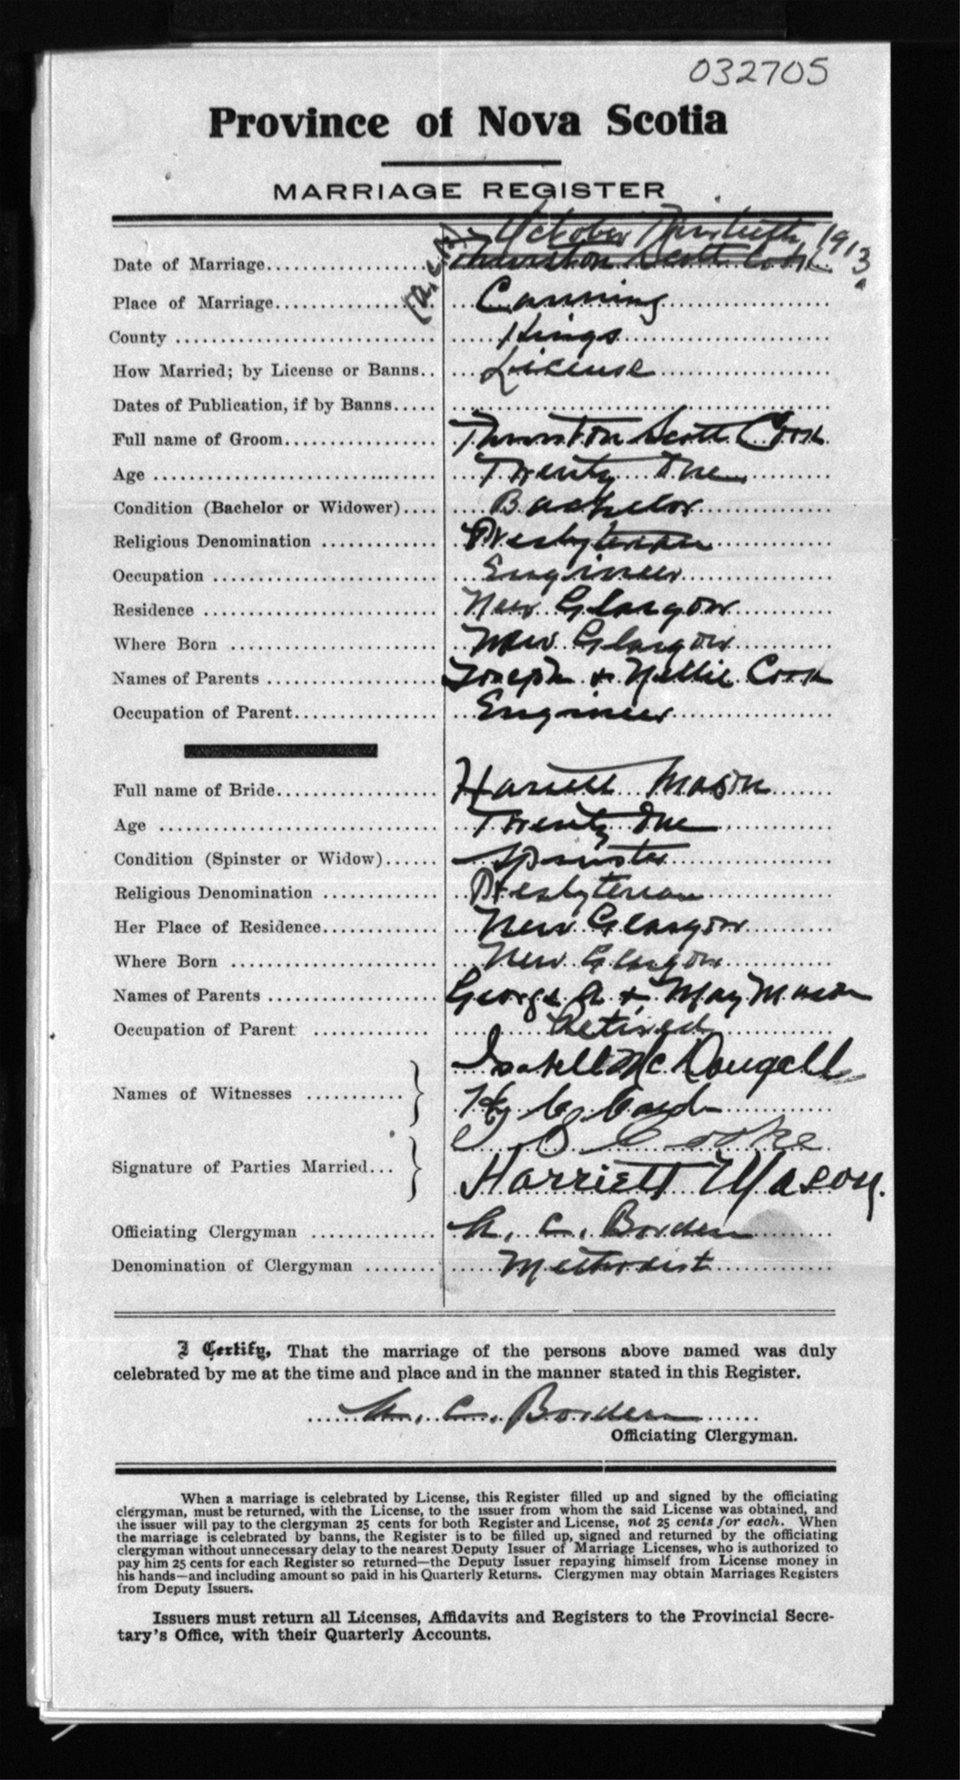 032705
Province of Nova Scotia
MARRIAGE REGISTER
October Thirtieth 1913
Date of Marriage Thurston Scott Cook
Place of Marriage Canning
County Kings
How Married; by License or Banns License
Dates of Publication, if by Banns
Full name of Groom Thurston Scott Cook
Age Twenty One
Condition (Bachelor or Widower) Bachelor
Religious Denomination Presbyterian
Occupation Engineer
Residence New Glasgow
Where Born New Glasgow
Names of Parents Joseph & Nellie Cook
Occupation of Parent Engineer
Full name of Bride Harriett Mason
Age Twenty One
Condition (Spinster or Widow) Spinster
Religious Denomination Presbyterian
Her Place of Residence New Glasgow
Where Born New Glasgow
Names of Parents George A & May Mason
Occupation of Parent Retired
Isabell McDougall
Names of Witnesses
Signature of Parties Married
S Cooke
Harriett Mason.
Officiating Clergyman C. Borden
Denomination of Clergyman Methodist
I Certify, That the marriage of the persons above named was duly
celebrated by me at the time and place and in the manner stated in this Register.
C. Borden
Officiating Clergyman.
When a marriage is celebrated by License, this Register filled up and signed by the officiating
clergyman, must be returned, with the License, to the issuer from whom the said License was obtained, and
the issuer will pay to the clergyman 25 cents for both Register and License, not 25 cents for each. When
the marriage is celebrated by banns, the Register is to be filled up, signed and returned by the officiating
clergyman without unnecessary delay to the nearest Deputy Issuer of Marriage Licenses, who is authorized to
pay him 25 cents for each Register so returned—the Deputy Issuer repaying himself from License money in
his hands—and including amount so paid in his Quarterly Returns. Clergymen may obtain Marriages Registers
from Deputy Issuers.
Issuers must return all Licenses, Affidavits and Registers to the Provincial Secre-
tary's Office, with their Quarterly Accounts.